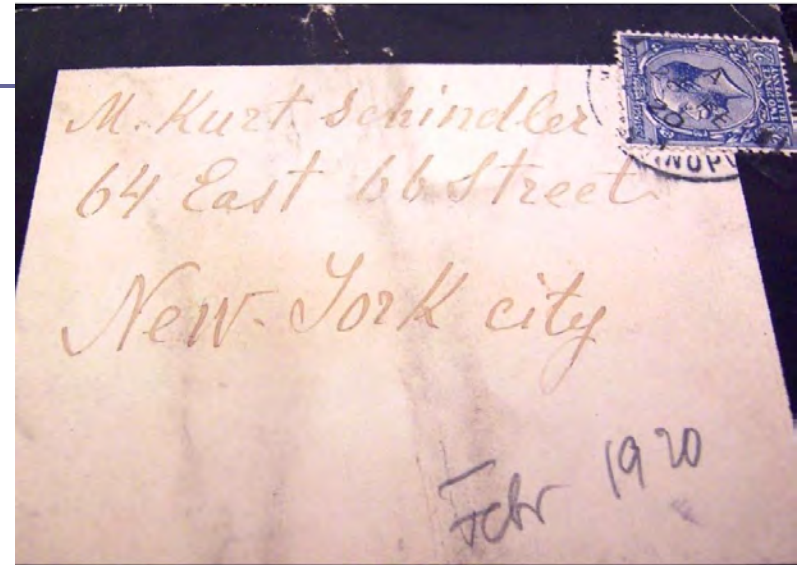 M. Kurt Schindler
64 East 66 Street
New-York city
Febr 1920